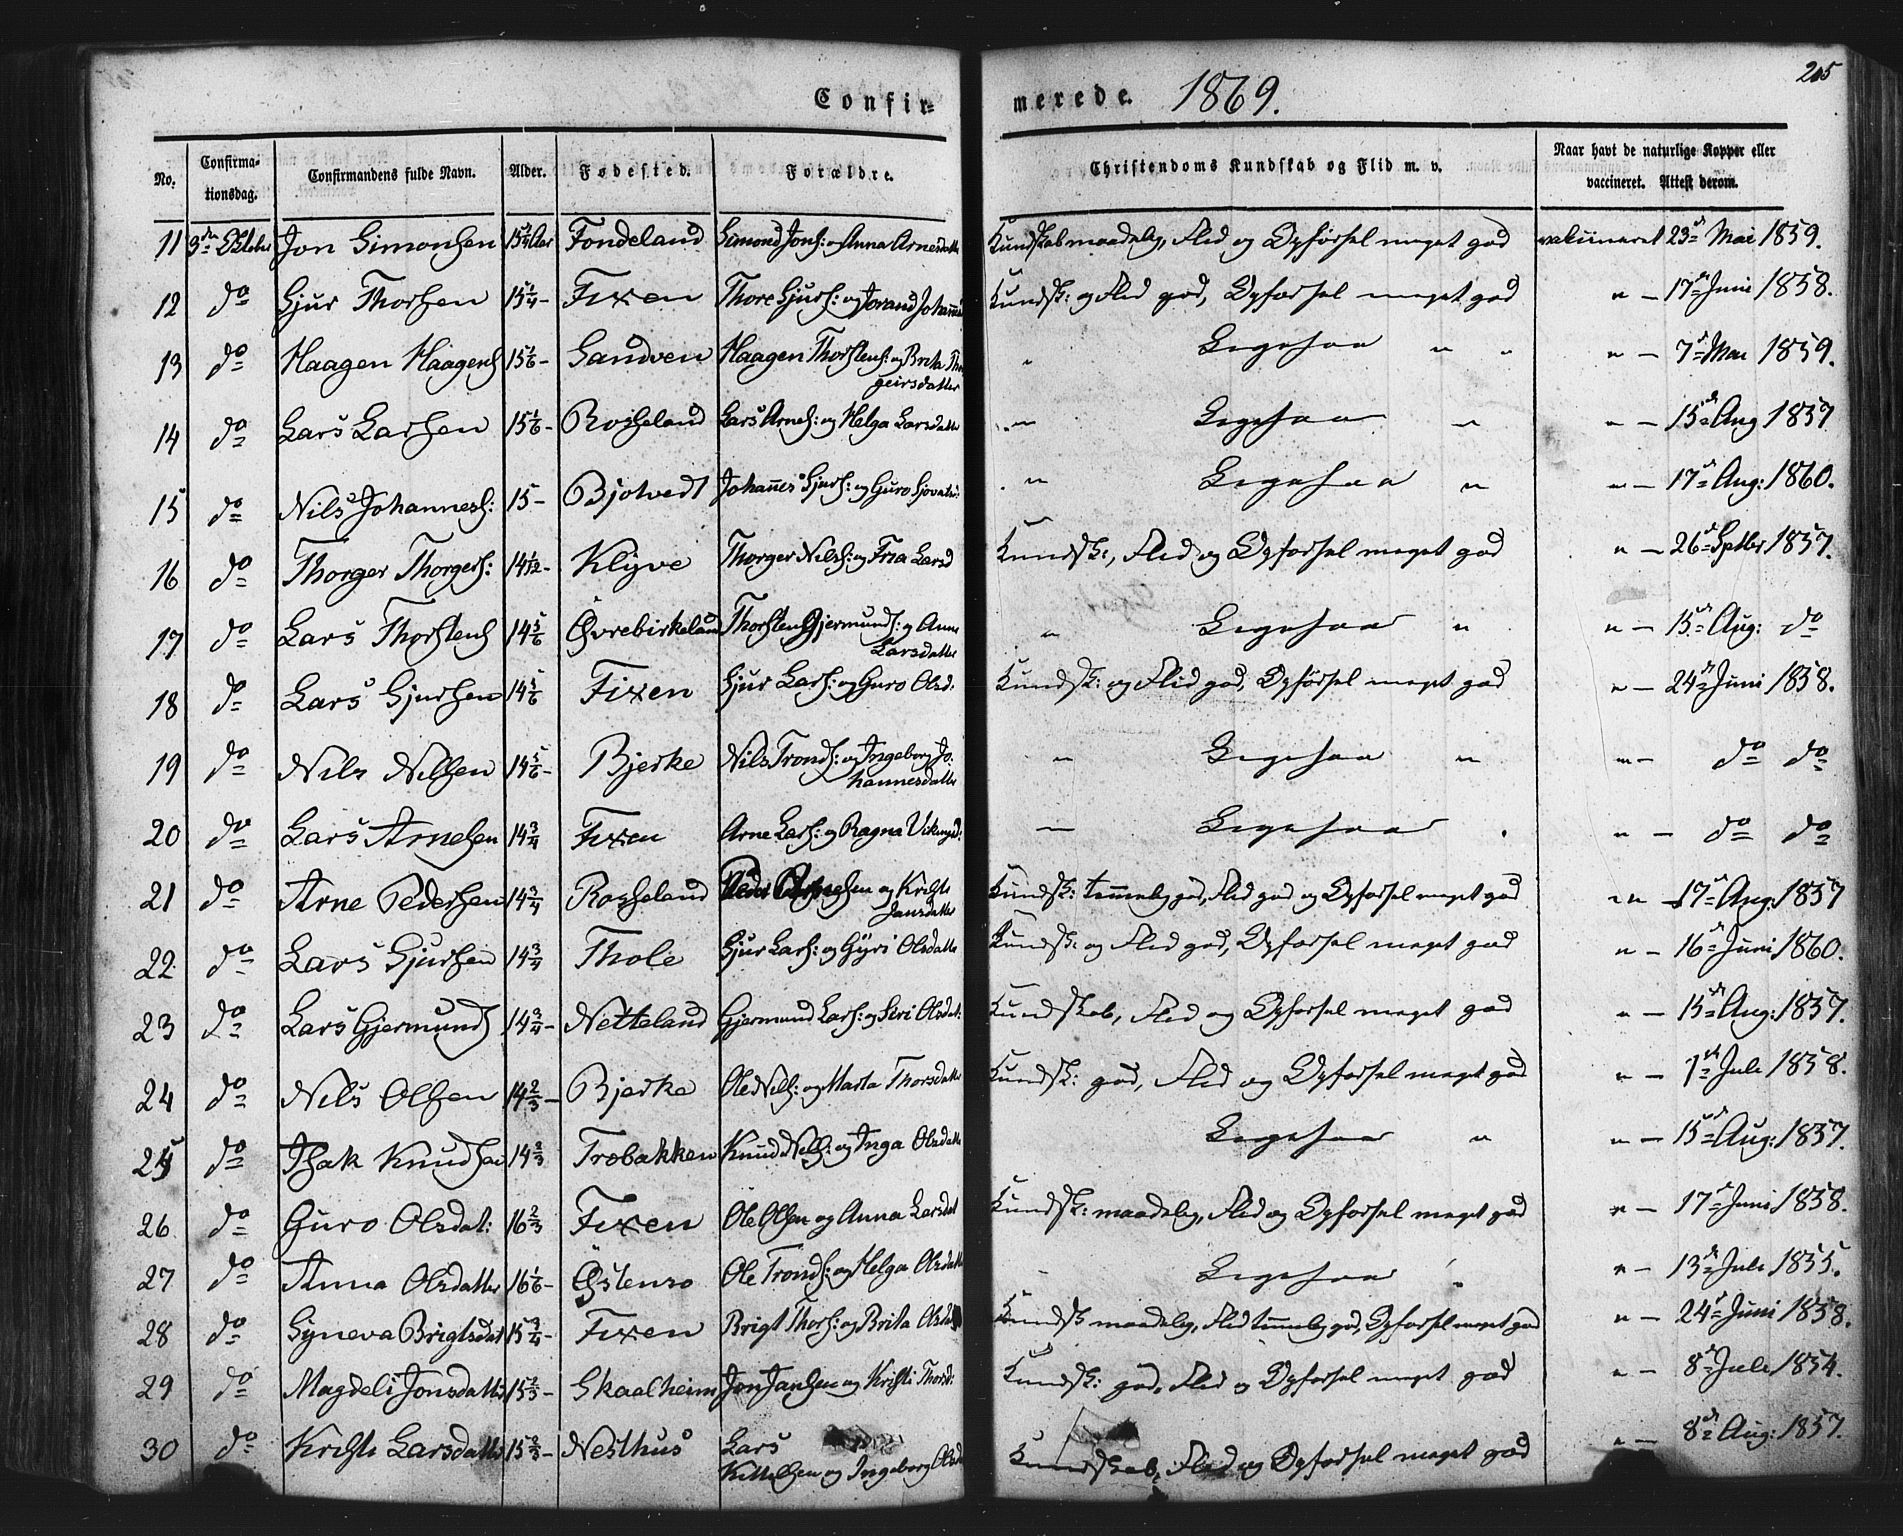 205
Confirmerede. 1869.
No. Confirmationsdag. Confirmandens fulde Navn. Alder. Fødested. Forældre. Christendoms Kundskab og Flid m. v. Naar havt de naturlige Kopper eller vaccineret. Attest derom.
11 3die Oktober Jon Simonsen 15 3/4 Aar Fondeland Simond Jons: og Anna Arnesdatter Kundskab maadelig, Flid og Opførsel meget god vakcineret 23de Mai 1859.
12 do Sjur Thorsen 15 1/4 - Fixen Thore Sjurs: og Jorand Kundsk: og Flid god, Opførsel meget god " - 17de Juni 1858.
13 do Haagen Haagens 15 1/6 - Sandven Haagen Thorstens: og Brita Thorgeirsdatter " Ligesaa " " " - 7de Mai 1859.
14 do Lars Larsen 15 1/6 - Rosseland Lars Arnes: og Helga Larsdatter " Ligesaa " " - 15de Aug 1857
15 do Nils Johannes: 15 - Bjotvedt Johannes Sjurs: og Guro " Ligesaa " " - 17de Aug: 1860.
16 do Thorger Thorgers: 14 11/12 - Klyve Thorger Nils: og Fria Larsd Kundsk:, Flid og Opførsel meget god " - 26de Septbr 1857.
17 do Lars Thorstens 14 5/6 Øvrebirkeland Thorsten Gjermunds: og Anna Larsdatter " Ligesaa " " - 15de Aug: do
18 do Lars Sjursen 14 5/6 Fixen Sjur Lars: og Guro Olsd. Kundsk: og Flid god, Opførsel meget god " - 24de Juni 1858.
19 do Nils Nilsen 14 5/6 - Bjerke Nils Tronds: og Ingeborg Johannesdatter " Ligesaa " " - do do
20 do Lars Arnesen 14 3/4 Fixen Arne Lars: og Ragna Vikingsd: - Ligesaa " - do do
21 do Arne Pedersen 14 3/4 Rosseland og Kristi Jansdatter Kundsk: temmelig god, Flid god og Opførsel meget god " " 17de Aug: 1857
22 do Lars Sjursen 14 3/4 Thole Sjur Lars: og Gyri Olsdatter Kundsk: og Flid god, Opførsel meget god " - 16de Juni 1860.
23 do Lars Gjermunds 14 3/4 - Netteland Gjermund Lars: og Siri Olsdat: Kundskab, Flid og Opførsel meget god " - 15de Aug: 1857.
24 do Nils Olsen 14 2/3 - Bjerke Ole Nils: og Marta Thorsdatter Kundsk: god, Flid og Opførsel meget god " - 1ste Juli 1858.
25 do Isak Knudsen 14 2/3 Trobakken Knud Nils: og Inga Olsdatter Ligesaa " " - 15de Aug: 1857.
26 do Guro Olsdat: 16 2/3 Fixen Ole Olsen og Anna Larsdat Kundsk: maadelig, Flid og Opførsel meget god " - 17de Juni 1858.
27 do Anna Olsdatter 16 1/6 - Østenso Ole Tronds: og Helga Olsdatter - Ligesaa " " - 13de Juli 1855.
28 do Syneva Brigtsdat 15 3/4 - Fixen Brigt Thors: og Brita Olsdat Kundsk maadelig, Flid temmelig god, Opførsel meget god " - 24de Juni 1858.
29 do Magdeli Jonsdatter 15 2/3 - Skaalheim Jon Jansen og Kristi Thorsd: Kundsk: god, Flid og Opførsel meget god " - 8de Juli 1854.
30 do Kristi Larsdatter 15 2/3 - Nesthus Lars Kittelsen og Ingeborg Olsd Kundskab, Flid og Opførsel meget god " - 8de Aug: 1857.